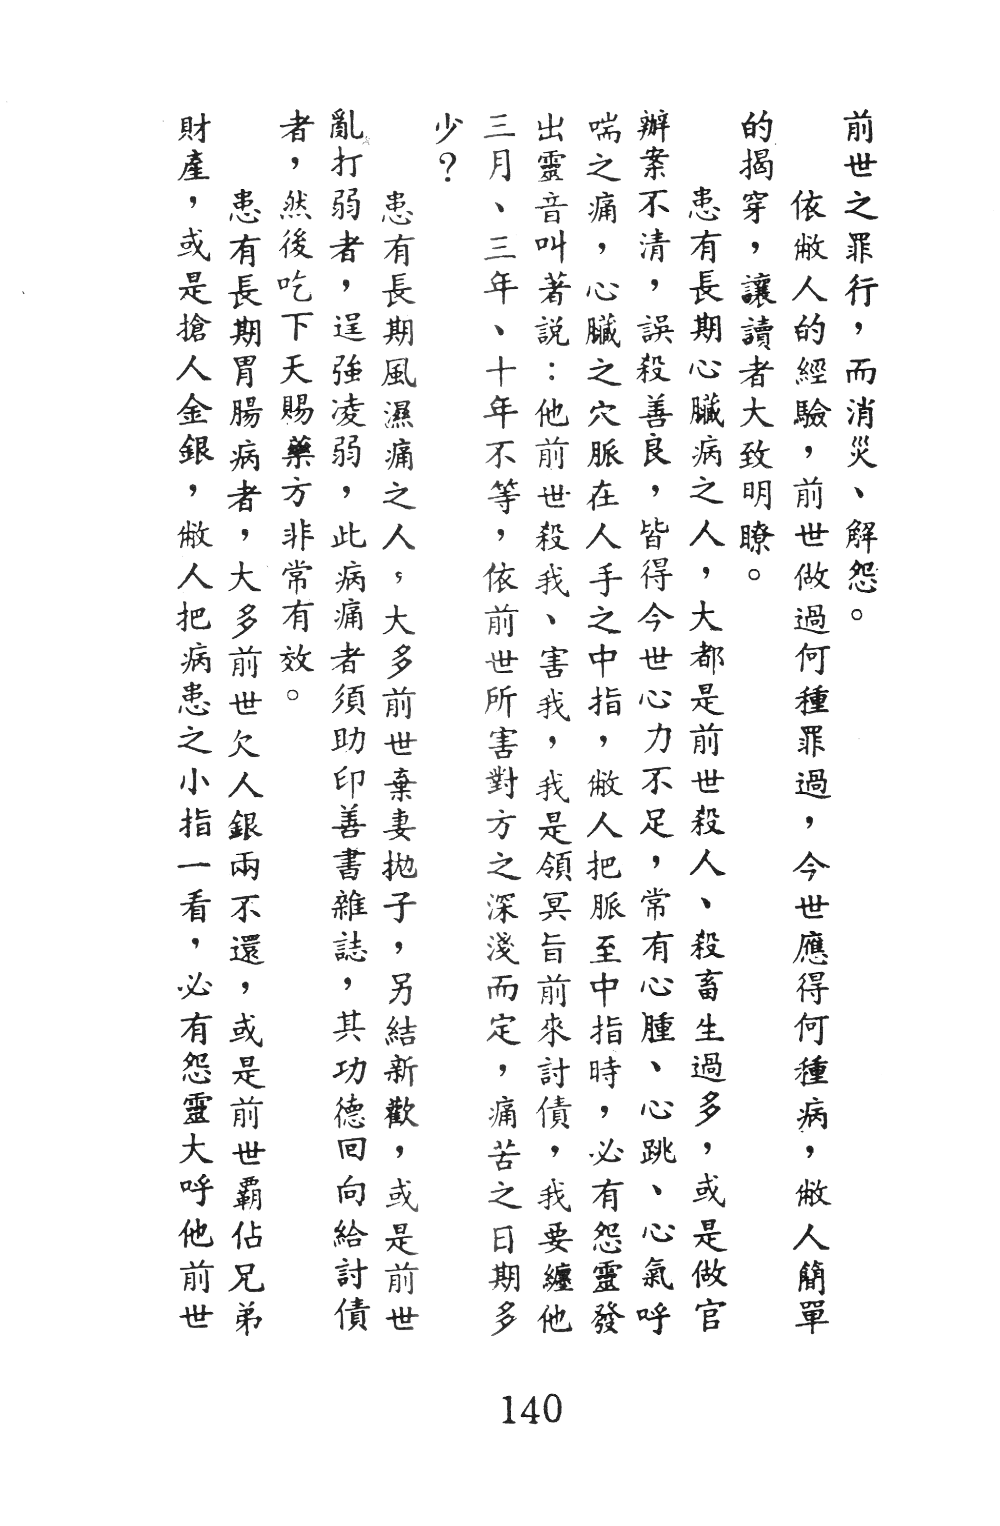 前世之罪行，而消災、解怨。
依敝人的經驗，前世做過何種罪過，今世應得何種病，敝人簡單
的揭穿，讓讀者大致明瞭。
患有長期心臟病之人，大都是前世殺人、殺畜生過多，或是做官
辦案不清，誤殺善良，皆得今世心力不足，常有心腫、心跳、心氣呼
喘之痛，心臟之穴脈在人手之中指，敝人把脈至中指時，必有怨靈發
出靈音叫著說：他前世殺我、害我，我是領冥旨前來討債，我要纏他
三月、三年、十年不等，依前世所害對方之深淺而定，痛苦之日期多
少？
患有長期風濕痛之人，大多前世棄妻拋子，另結新歡，或是前世
亂打弱者，逞強凌弱，此病痛者須助印善書雜誌，其功德回向給討債
者，然後吃下天賜藥方非常有效。
患有長期胃腸病者，大多前世欠人銀兩不還，或是前世霸佔兄弟
財產，或是搶人金銀，敝人把病患之小指一看，必有怨靈大呼他前世
140